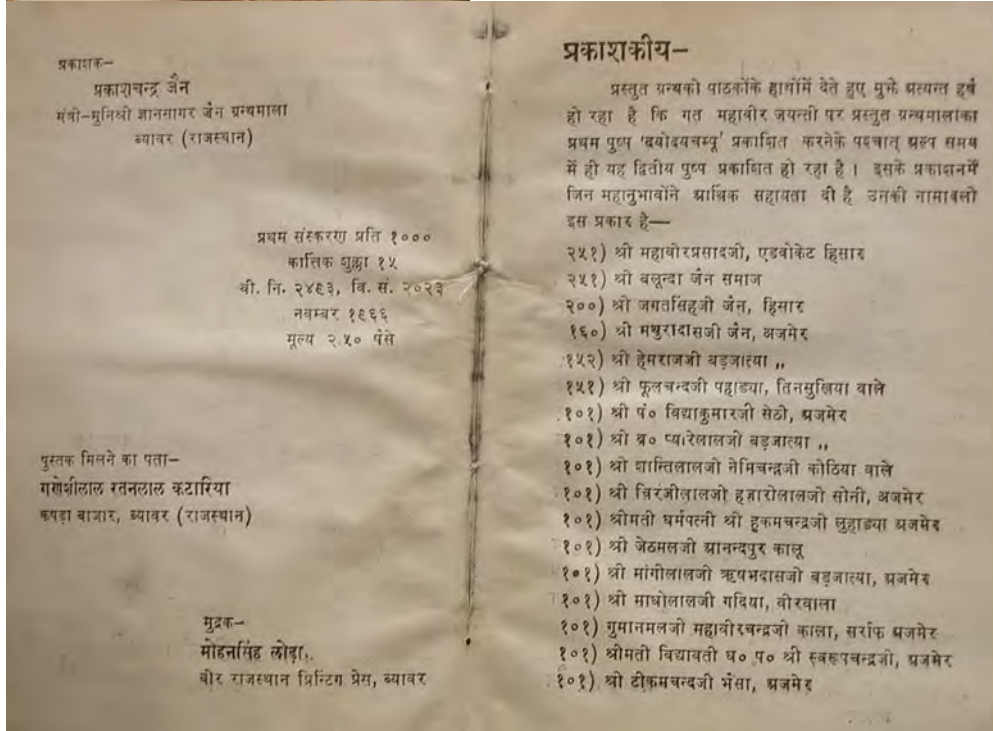 प्रकाशक–
प्रकाशचन्द्र जैन
मंत्री–मुनिश्री ज्ञानसागर जैन ग्रन्थमाला
ब्यावर (राजस्थान)
प्रथम संस्करण प्रति १०००
कार्त्तिक शुक्ला १५
वी. नि. २४९३, वि. सं. २०२३
नवम्बर १९६६
मूल्य २.५० पैसे
पुस्तक मिलने का पता–
गणेशीलाल रतनलाल कटारिया
कपड़ा बाजार, ब्यावर (राजस्थान)
मुद्रक–
मोहनसिंह लोढ़ा,
वीर राजस्थान प्रिन्टिंग प्रेस, ब्यावर
प्रकाशकीय–
प्रस्तुत ग्रन्थको पाठकोंके हाथोंमें देते हुए मुझे अत्यन्त हर्ष
हो रहा है कि गत महावीर जयन्ती पर प्रस्तुत ग्रन्थमालाका
प्रथम पुष्प 'दयोदयचम्पू' प्रकाशित करनेके पश्चात् अल्प समय
में ही यह द्वितीय पुष्प प्रकाशित हो रहा है। इसके प्रकाशनमें
जिन महानुभावोंने आर्थिक सहायता दी है उनकी नामावली
इस प्रकार है—
२५१) श्री महावीरप्रसादजी, एडवोकेट हिसार
२५१) श्री बलून्दा जैन समाज
२००) श्री जगतसिंहजी जैन, हिसार
१६०) श्री मथुरादासजी जैन, अजमेर
१५२) श्री हेमराजजी बड़जात्या ,,
१५१) श्री फूलचन्दजी पहाड्या, तिनसुखिया वाले
१०१) श्री पं० विद्याकुमारजी सेठी, अजमेर
१०१) श्री ब्र० प्यारेलालजी बड़जात्या ,,
१०१) श्री शान्तिलालजी नेमिचन्द्रजी कोठिया वाले
१०१) श्री चिरंजीलालजी हजारीलालजी सोनी, अजमेर
१०१) श्रीमती धर्मपत्नी श्री हुकमचन्द्रजी लुहाड्या अजमेर
१०१) श्री जेठमलजी आनन्दपुर कालू
१०१) श्री मांगीलालजी ऋषभदासजी बड़जात्या, अजमेर
१०१) श्री माधोलालजी गदिया, वीरवाला
१०१) गुमानमलजी महावीरचन्द्रजी काला, सर्राफ अजमेर
१०१) श्रीमती विद्यावती ध० प० श्री स्वरूपचन्द्रजी, अजमेर
१०१) श्री टीकमचन्दजी भैंसा, अजमेर